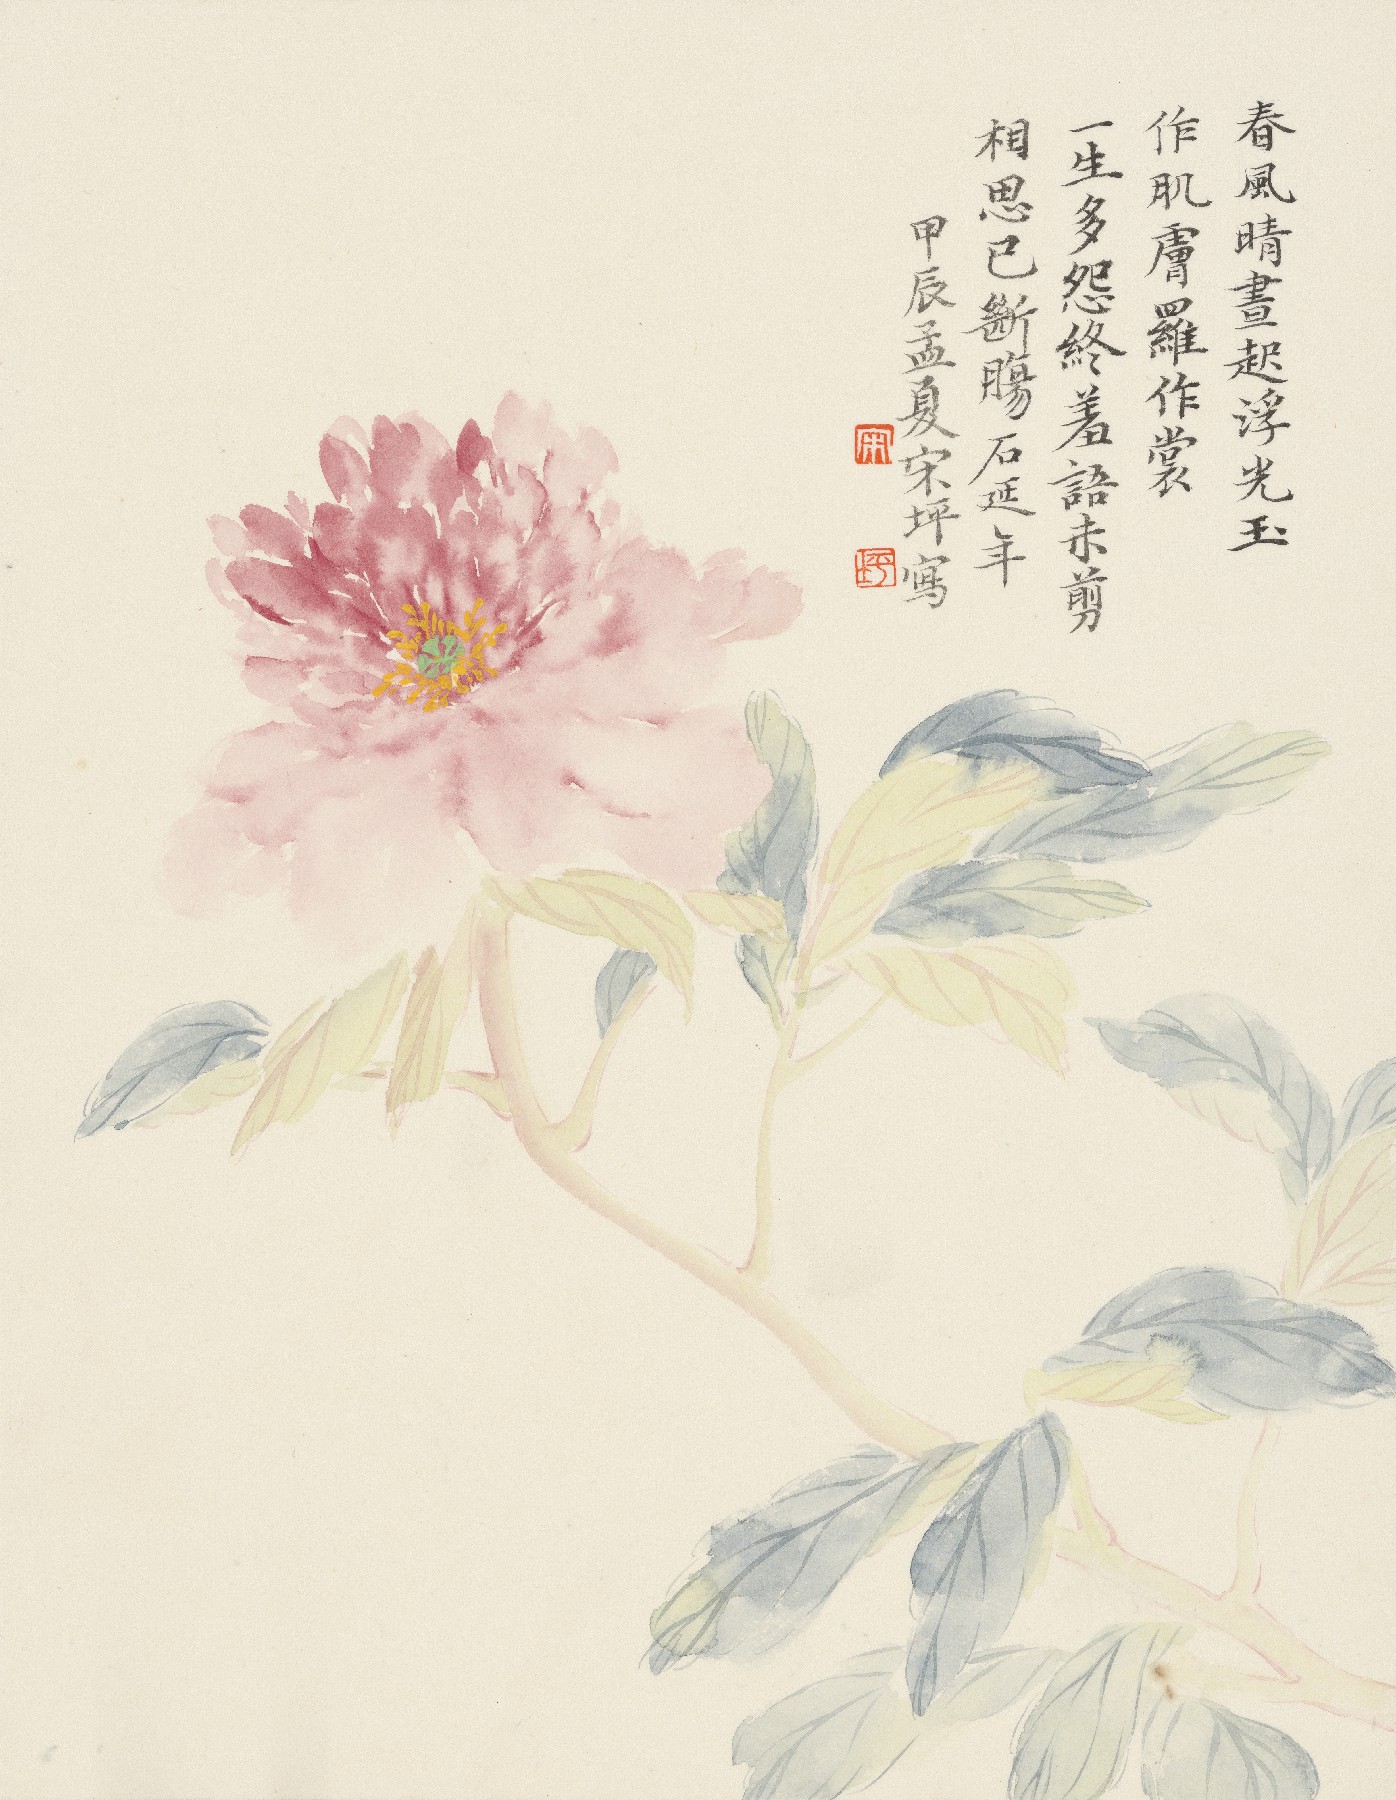 春風晴晝起浮光玉
作肌膚羅作裳
一生多怨終羞語未剪
相思已斷腸 石延年
甲辰孟夏宋坪寫
宋
坪